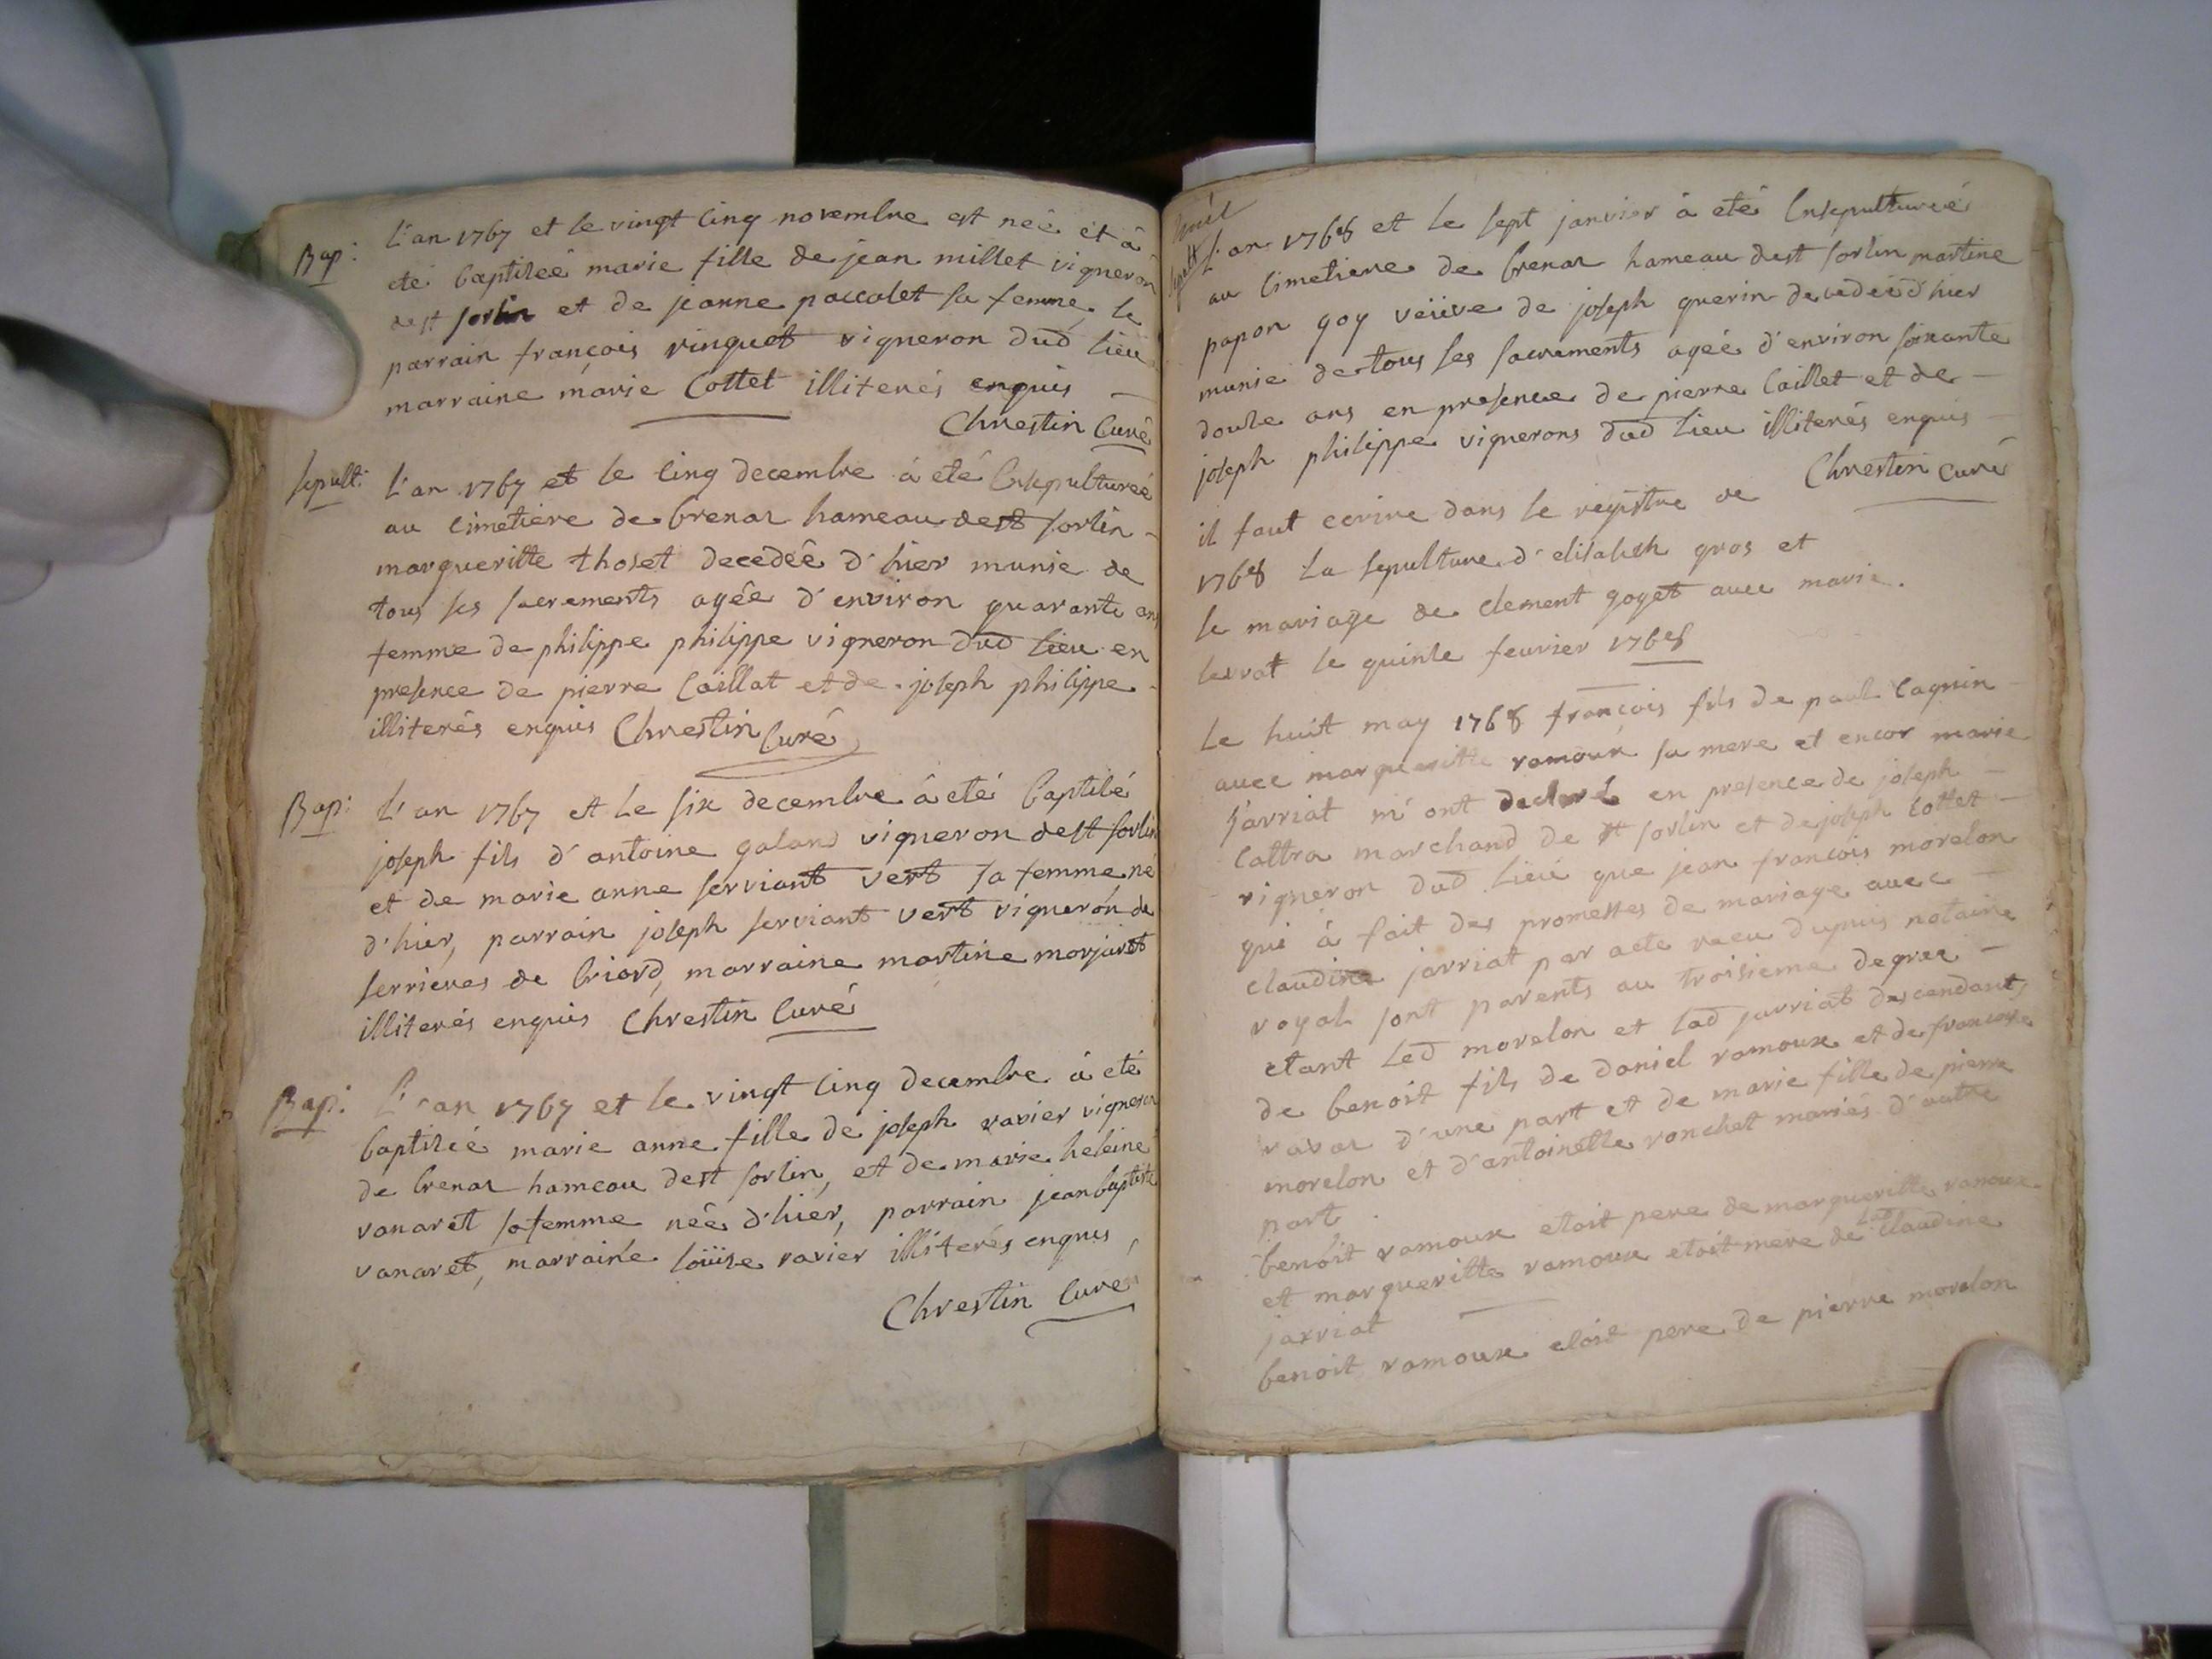 Bap: L'an 1767 et le vingt cinq novembre est neé et à
eté baptiseé marie fille de jean millet vigneron
de st sorlin et de jeanne paccalet sa femme, le
parrain françois vinguet vigneron dud lieu
marraine marie Cottet illiterés enquis
Chrestin Curé
sepult: L'an 1767 et le cinq decembre à eté Ensepultureé
au cimetiere de brenaz hameau de st sorlin
margueritte thoset decedeé d'hier munie de
tous ses sacrements ageé d'environ quarante ans
femme de philippe philippe vigneron dud lieu en
presence de pierre Caillat et de joseph philippe
illiterés enquis Chrestin Curé
Bap: L'an 1767 et le six decembre à eté baptisé
joseph fils d'antoine galand vigneron de st sorlin
et de marie anne serviant vert sa femme né
d'hier, parrain joseph serviant vert vigneron de
serrieres de briord, marraine martine morjaret
illiterés enquis Chrestin Curé
Bap: L'an 1767 et le vingt cinq decembre à eté
baptiseé marie anne fille de joseph ravier vigneron
de brenaz hameau de st sorlin, et de marie heleine
vanaret sa femme neé d'hier, parrain jean baptiste
vanaret, marraine loüise ravier illiterés enquis
Chrestin Curé
sepult L'an 1768 et le sept janvier à eté Ensepultureé
au cimetiere de brenaz hameau de st sorlin martine
papon goy veüve de joseph guerin decedeé d'hier
munie de tous ses sacrements ageé d'environ soixante
douze ans en presence de pierre Caillet et de
joseph philippe vignerons dud lieu illiterés enquis
Chrestin Curé
il faut ecrire dans le registre de
1768 la sepulture d'elisabeth gros et
le mariage de clement goyet avec marie
levrat le quinze fevrier 1768
Le huit may 1768 françois fils de paul Cagnin
avec margueritte ramoux sa mere et encor marie
jarriat m'ont declaré en presence de joseph
Cattra marchand de st sorlin et de joseph Cottet
vigneron dud lieu que jean françois morelon
qui à fait des promesses de mariage avec
claudine jarriat par acte reçu dupuis notaire
royal sont parents au troisieme degree
etant led morelon et lad jarriat descendants
de benoit fils de daniel ramoux et de françoise
ravaz d'une part et de marie fille de pierre
morelon et d'antoinette ronchet mariés d'autre
part.
benoit ramoux etoit pere de margueritte ramoux
et margueritte ramoux etoit mere de lad claudine
jarriat
benoit ramoux etoit pere de pierre morelon